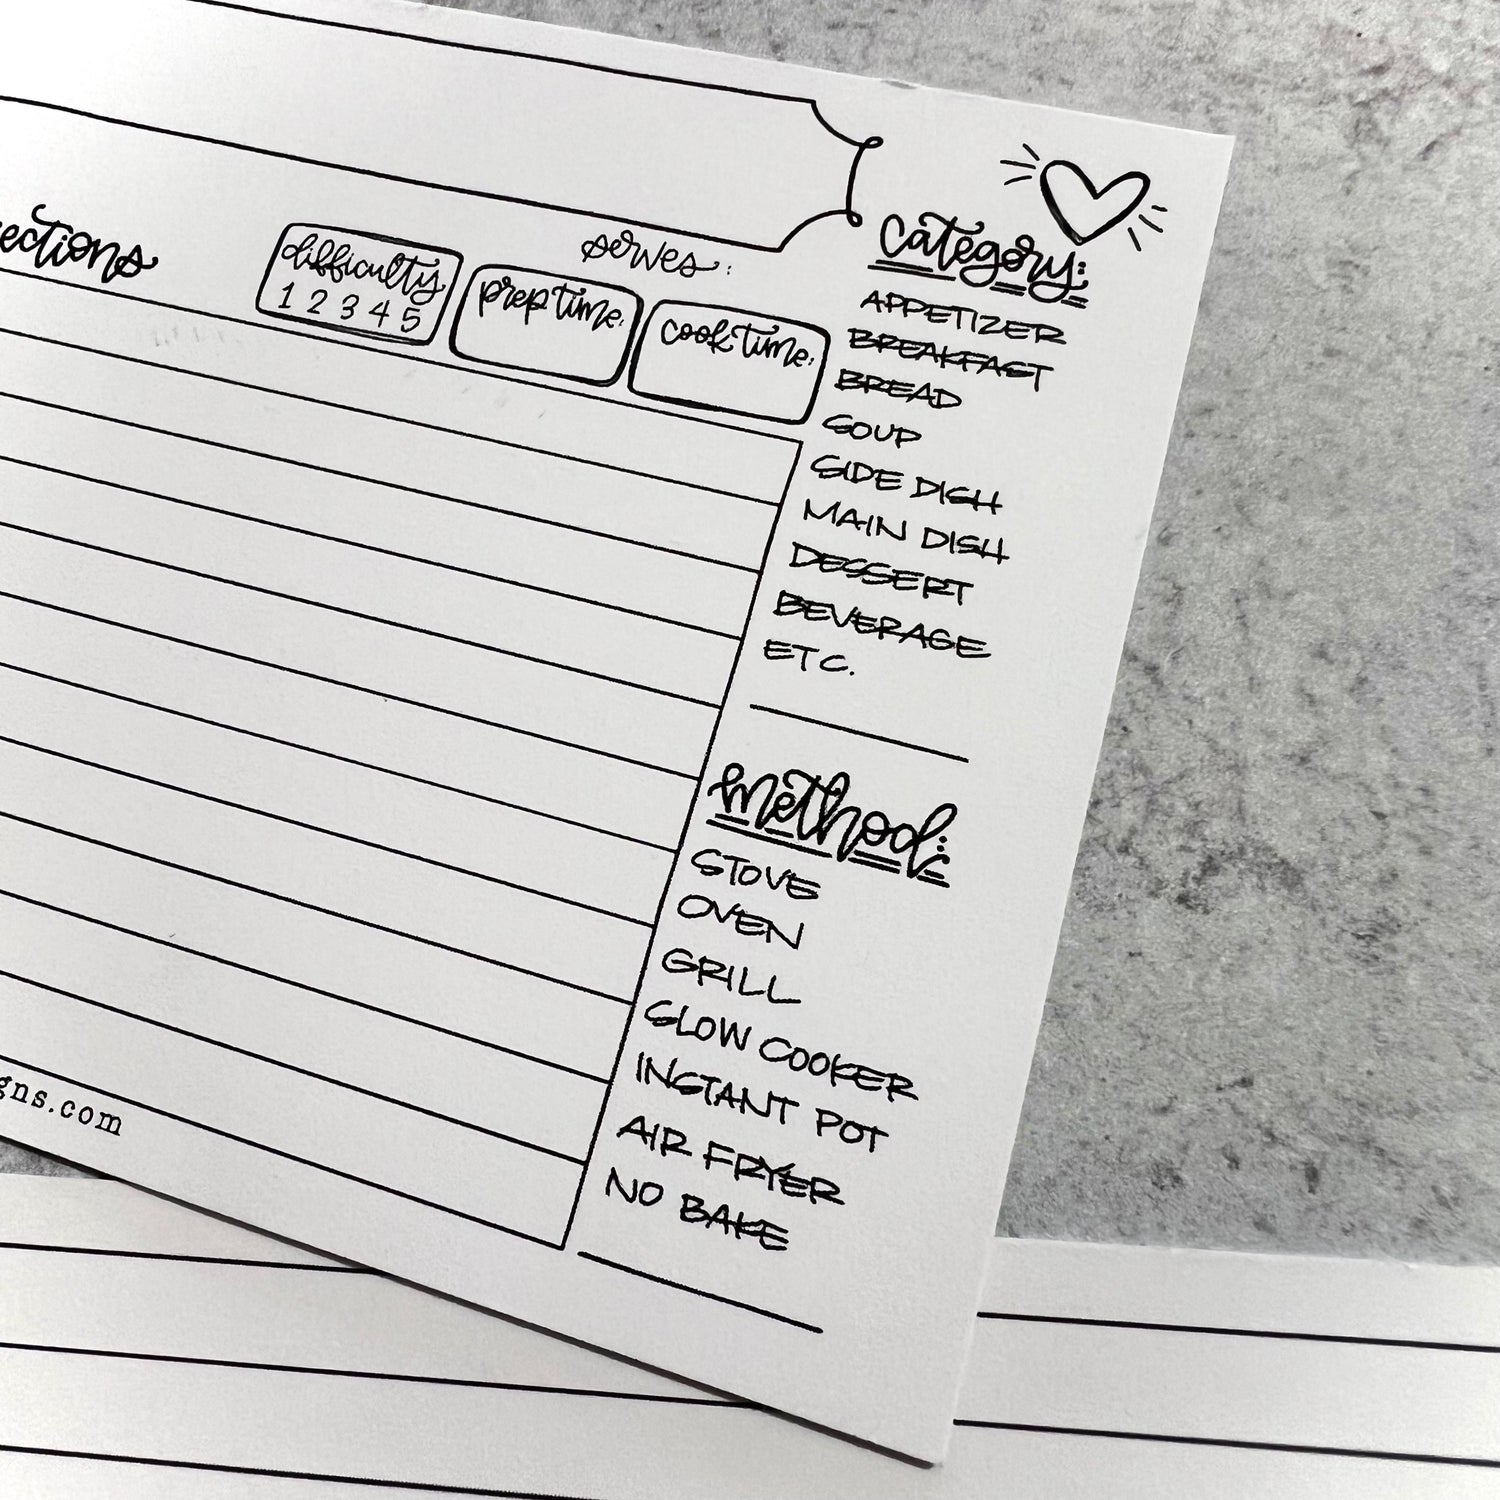 ections
difficulty
1 2 3 4 5
serves:
prep time:
cook time:
category:
APPETIZER
BREAKFAST
BREAD
SOUP
SIDE DISH
MAIN DISH
DESSERT
BEVERAGE
ETC.
method:
STOVE
OVEN
GRILL
SLOW COOKER
INSTANT POT
AIR FRYER
NO BAKE
gns.com